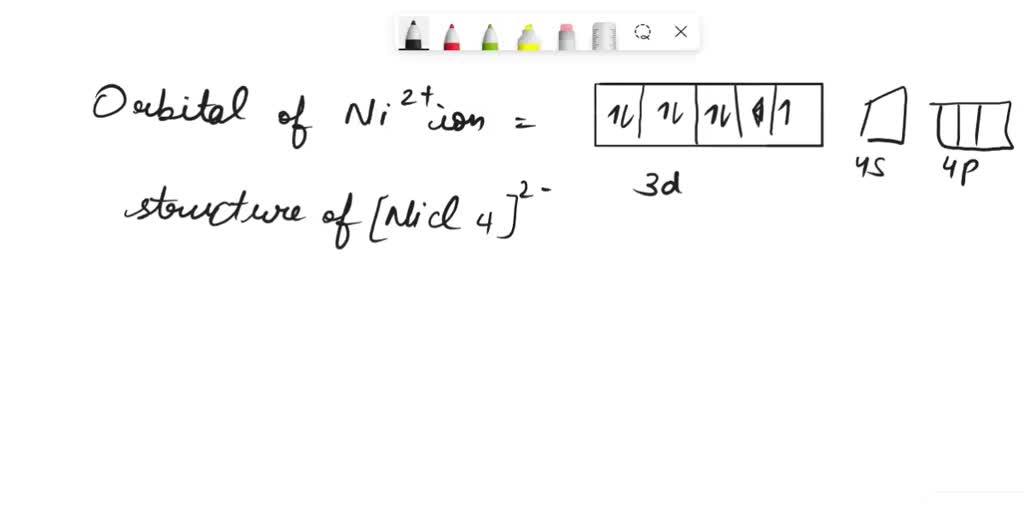 Orbital of Ni²⁺ ion = ↿⇂ ↿⇂ ↿⇂ ↿ ↿
3d 4s 4p
structure of [Nicl 4]²⁻